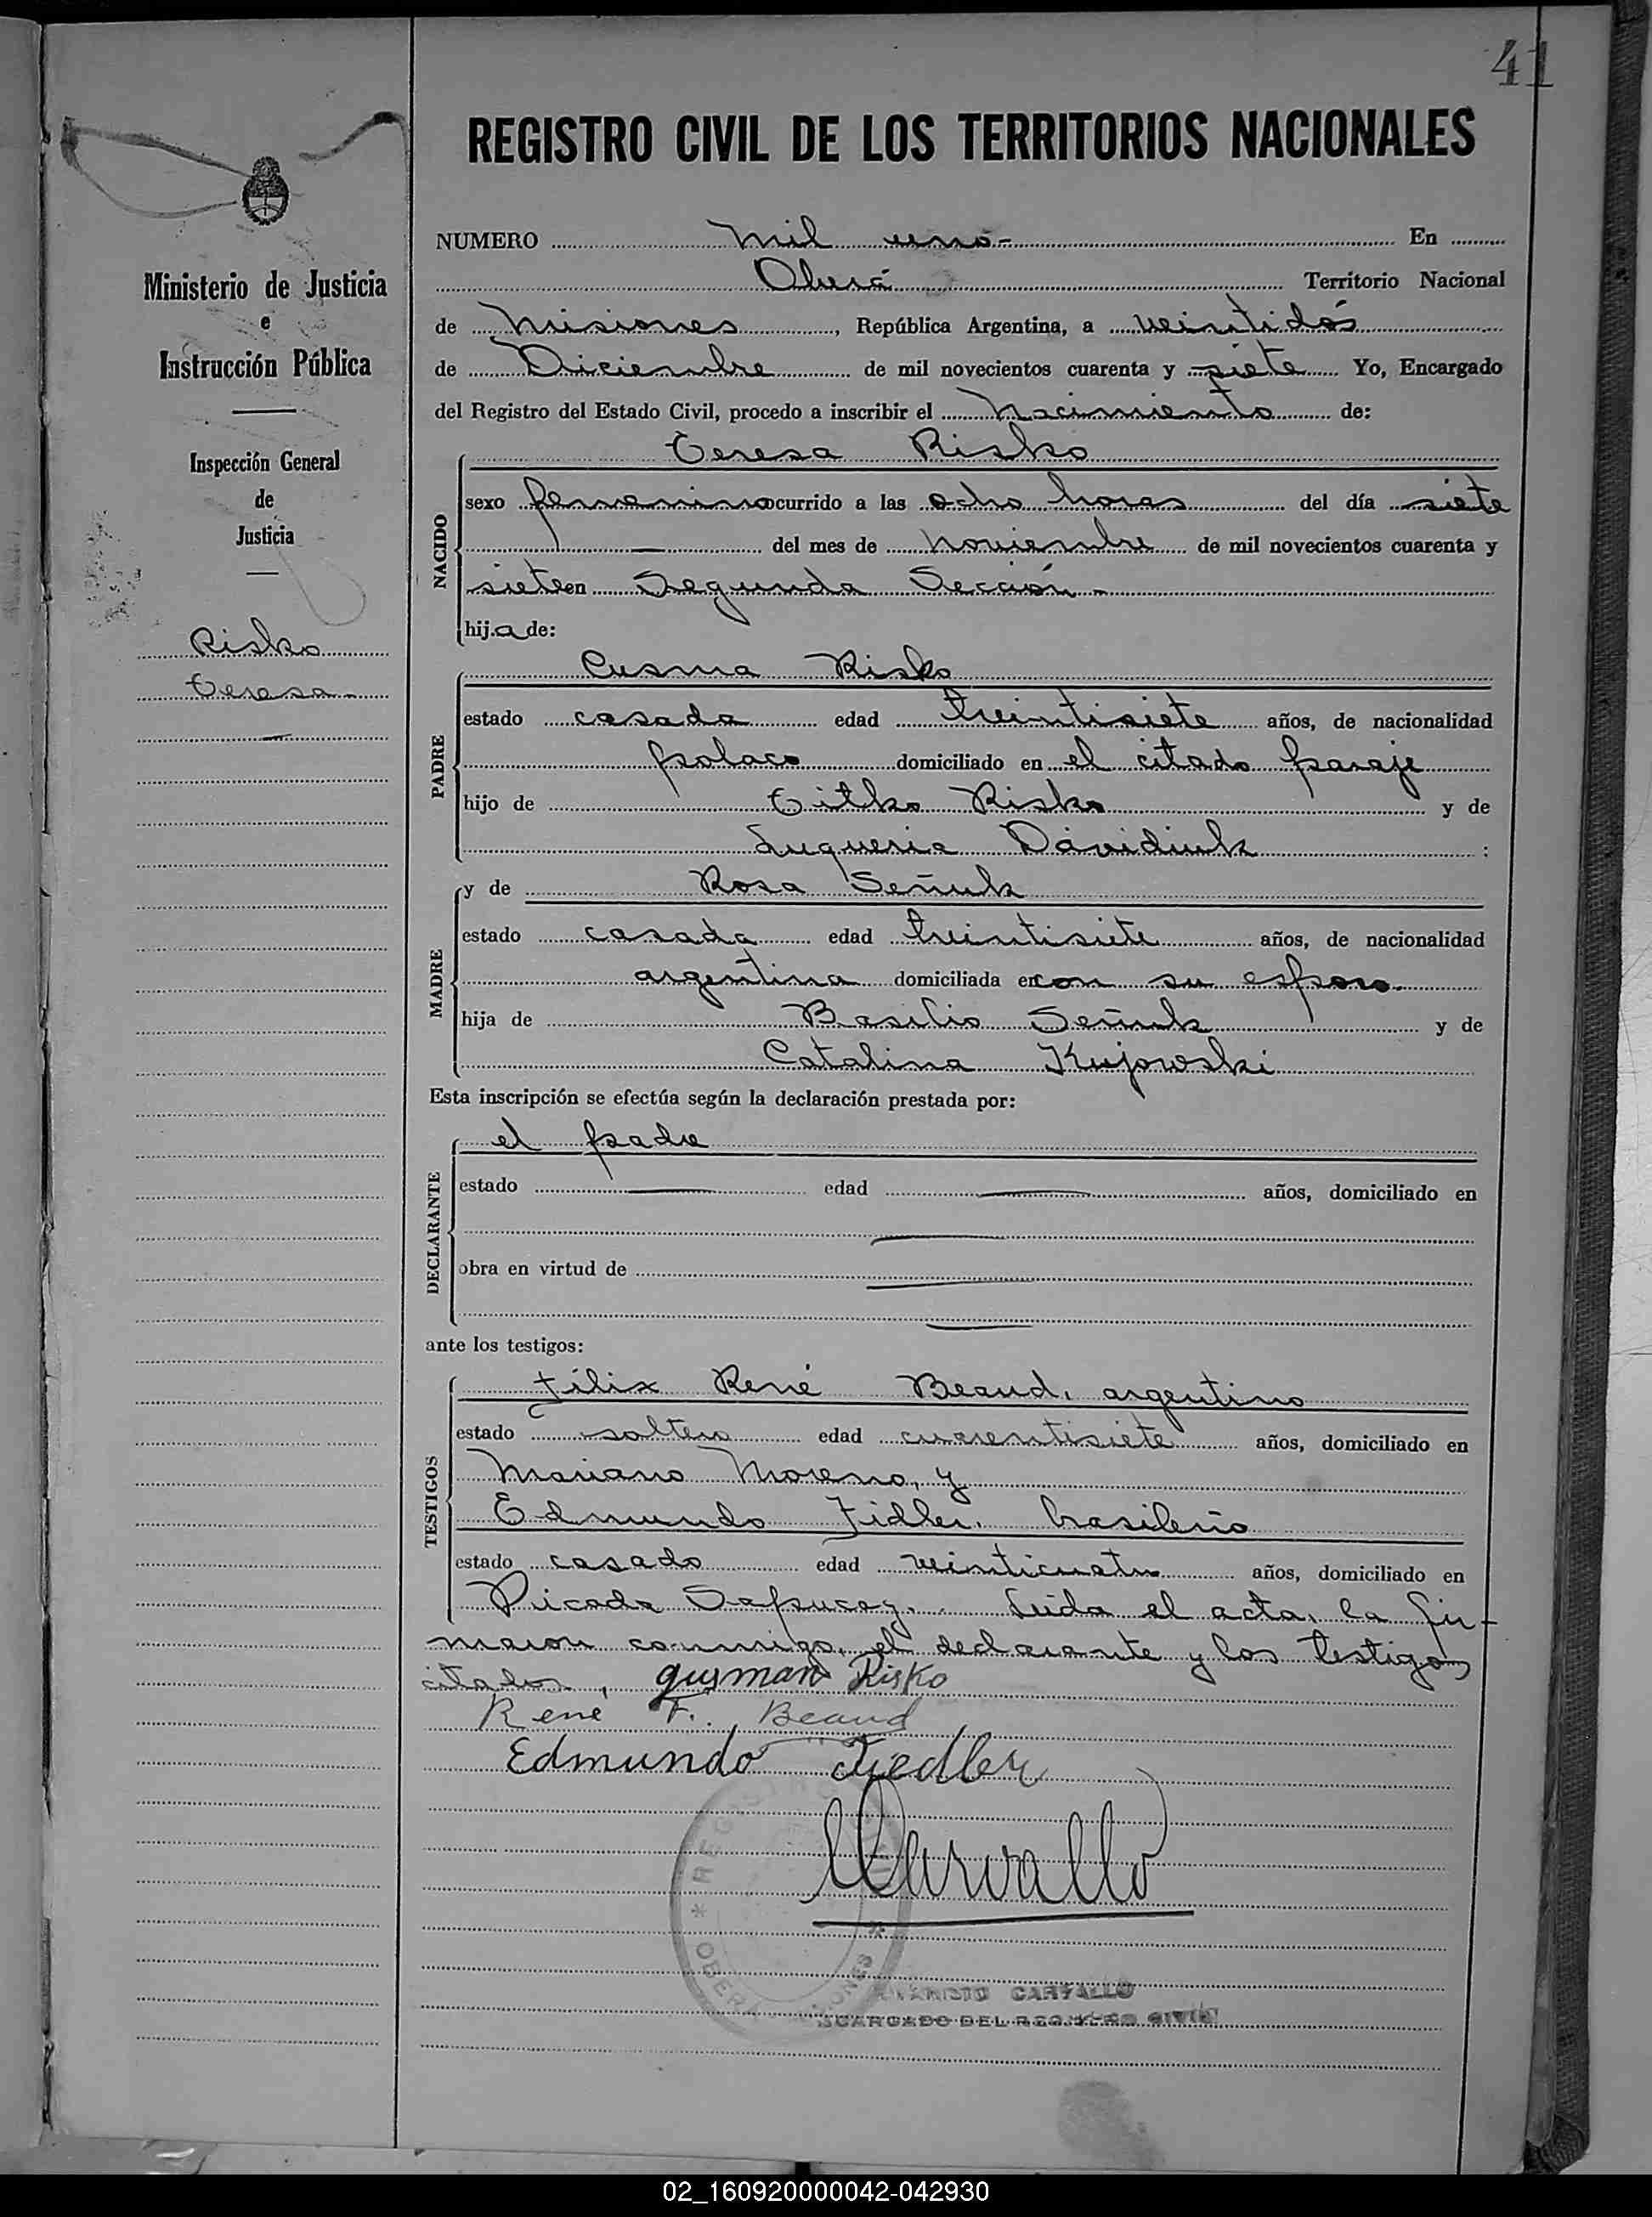 41
REGISTRO CIVIL DE LOS TERRITORIOS NACIONALES
Ministerio de Justicia
e
Instrucción Pública
Inspección General
de
Justicia
Risko
Teresa
NUMERO mil uno- En
Oberá Territorio Nacional
de Misiones, República Argentina, a veintidós
de Diciembre de mil novecientos cuarenta y siete Yo, Encargado
del Registro del Estado Civil, procedo a inscribir el nacimiento de:
NACIDO
Teresa Risko
sexo femenino ocurrido a las ocho horas del día siete
del mes de noviembre de mil novecientos cuarenta y
siete en Segunda Sección-
hija de:
PADRE
Cusma Risko
estado casado edad treintisiete años, de nacionalidad
polaco domiciliado en el citado paraje
hijo de Titko Risko y de
Davidiuk:
MADRE
y de Rosa Señuk
estado casada edad treintisiete años, de nacionalidad
argentina domiciliada en con su esposo-
hija de Basilio Señuk y de
Catalina Kujowski
Esta inscripción se efectúa según la declaración prestada por:
DECLARANTE
el padre
estado edad años, domiciliado en
obra en virtud de
ante los testigos:
TESTIGOS
Félix René Beaud, argentino
estado soltero edad cuarentisiete años, domiciliado en
Mariano Moreno, y
Edmundo Fidler, brasileño
estado casado edad veinticuatro años, domiciliado en
Picada Sapucay. Leída el acta, la fir-
maron conmigo, el declarante y los testigos
citados,
gusman Risko
René F. Beaud
Edmundo Fiedler
Carvallo
REGISTRO
OBERA MISIONES
EVARISTO CARVALLO
ENCARGADO DEL REGISTRO CIVIL
02_160920000042-042930